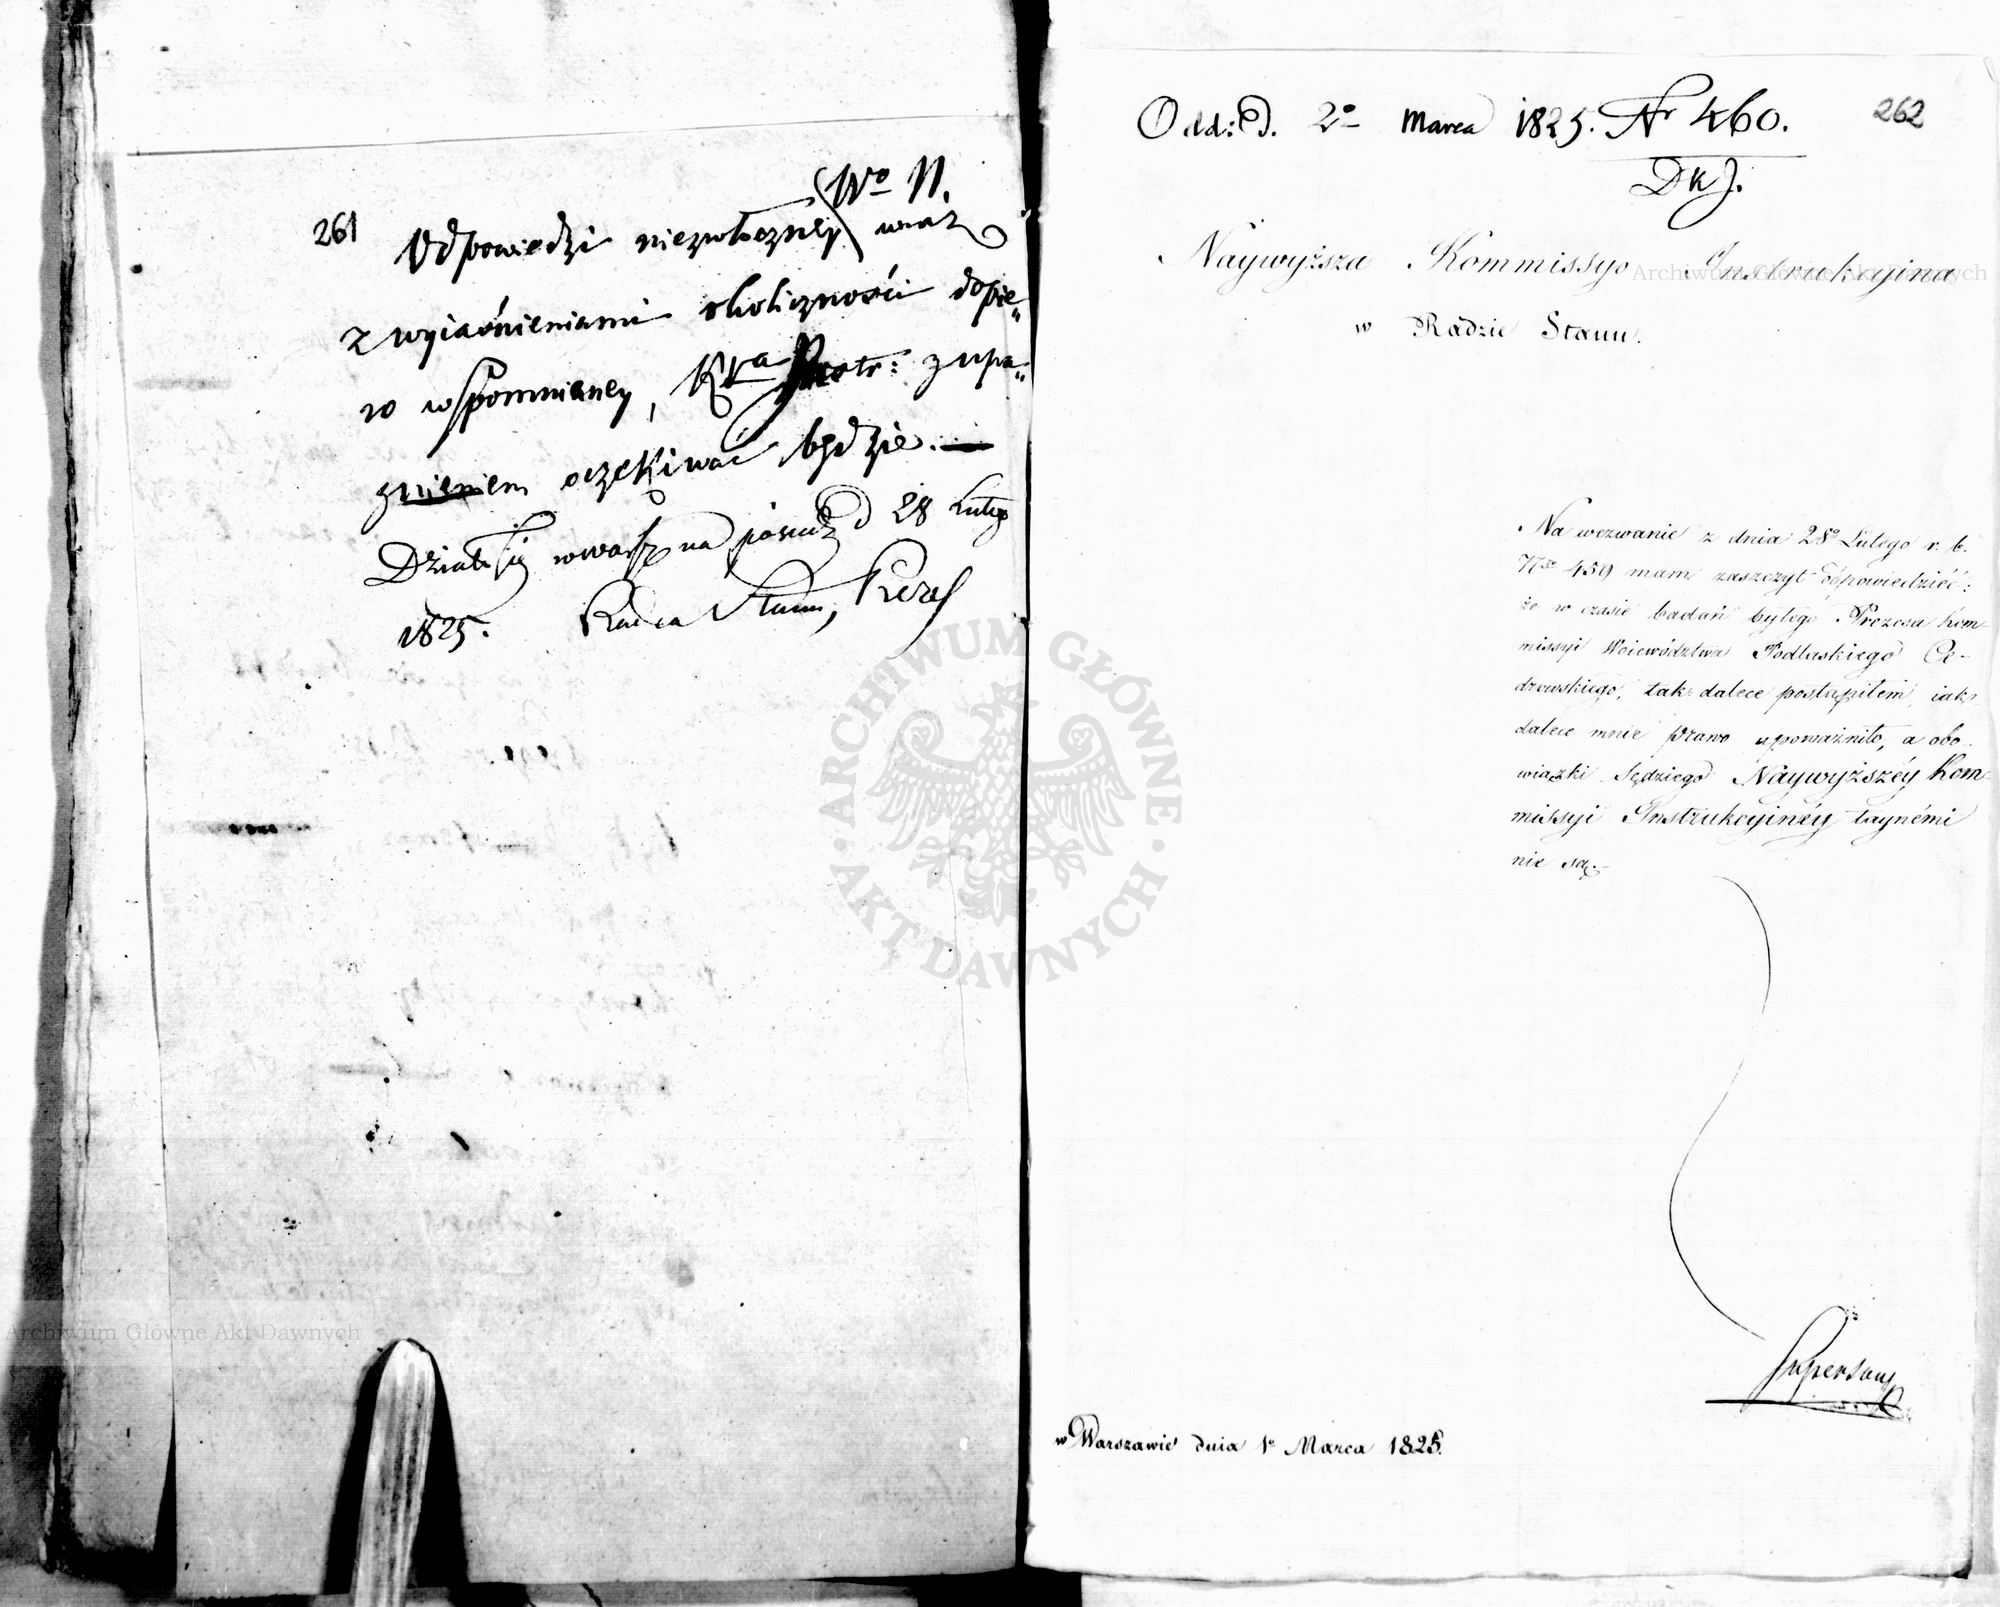 261
Wo N.
Odpowiedzi niezwłoczney wraz
z wyiaśnieniami okoliczności dopie„
ro wspomnianey, Kra Instr: z upra„
gnieniem oczekiwać będzie.—
Działo się w Warsz na posiedz d 28 Lutego
1825. Radca Stanu,
Odd: D. 2o Marca 1825. Nr 460.
262
DKJ.
Naywyższa Kommissyo Instrukcyina
w Radzie Stanu.
Na wezwanie z dnia 28o Lutego r. b.
Nro 459 mam zaszczyt odpowiedzieć:
że w czasie badań byłego Prezesa Kom-
missyi Woiewództwa Podlaskiego Ce-
drowskiego, tak dalece postąpiłem, iak
dalece mnie prawo upoważniło, a obo-
wiązki Sędziego Naywyższéy Kom-
missyi Instrukcyinéy taynémi
nie są.-
w Warszawie dnia 1o Marca 1825.
ARCHIWUM GŁÓWNE AKT DAWNYCH
Archiwum Główne Akt Dawnych
Archiwum Główne Akt Dawnych